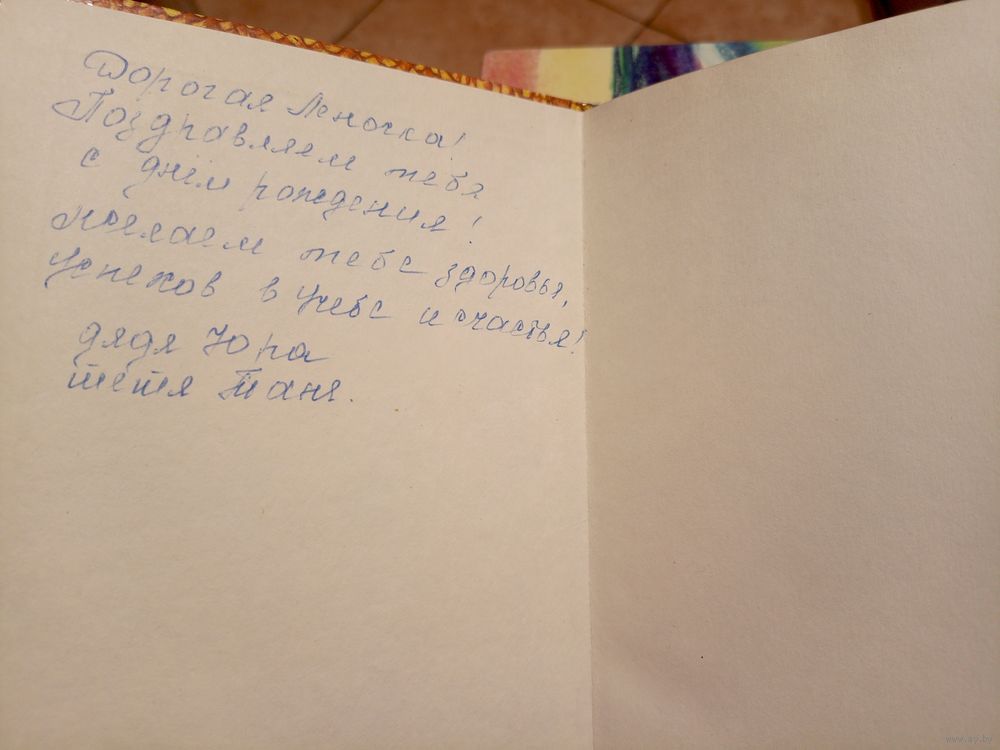 Дорогая Леночка!
Поздравляем тебя
с днём рождения!
Желаем тебе здоровья,
успехов в учебе и счастья!
дядя Юра
тетя Таня.
www.ay.by